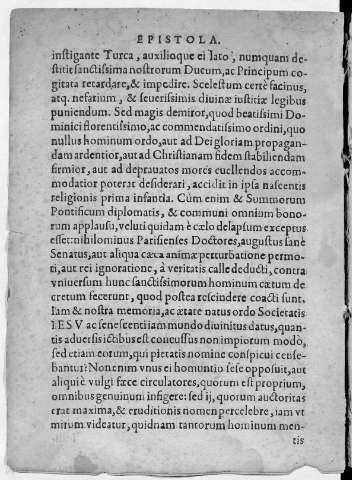 EPISTOLA.
instigante Turca, auxilioque ei lato, numquam de-
stitit sanctissima nostrorum Ducum, ac Principum co-
gitata retardare, & impedire. Scelestum certè facinus,
atq. nefarium, & seuerissimis diuinæ iustitiæ legibus
puniendum. Sed magis demiror, quod beatissimi Do-
minici florentissimo, ac commendatissimo ordini, quo
nullus hominum ordo, aut ad Dei gloriam propagan-
dam ardentior, aut ad Christianam fidem stabiliendam
firmior, aut ad deprauatos mores euellendos accom-
modatior poterat desiderari, accidit in ipsa nascentis
religionis prima infantia. Cùm enim & Summorum
Pontificum diplomatis, & communi omnium bono-
rum applausu, veluti quidam è cælo delapsum exceptus
esset: nihilominus Parisienses Doctores, augustus sanè
Senatus, aut aliqua cæca animæ perturbatione permo-
ti, aut rei ignoratione, à veritatis calle deducti, contra
vniuersum hunc sanctissimorum hominum cætum de
cretum fecerunt, quod postea rescindere coacti sunt.
Iam & nostra memoria, ac ætate natus ordo Societatis
IESV ac senescenti iam mundo diuinitus datus, quan-
tis aduersis ictibus est concussus non impiorum modò,
sed etiam eorum, qui pietatis nomine conspicui cense-
bantur? Non enim vnus ei homuntio sese opposuit, aut
aliqui è vulgi fæce circulatores, quorum est proprium,
omnibus genuinum infigere: sed ij, quorum auctoritas
erat maxima, & eruditionis nomen percelebre, iam vt
mirum videatur, quidnam tantorum hominum men-
tis